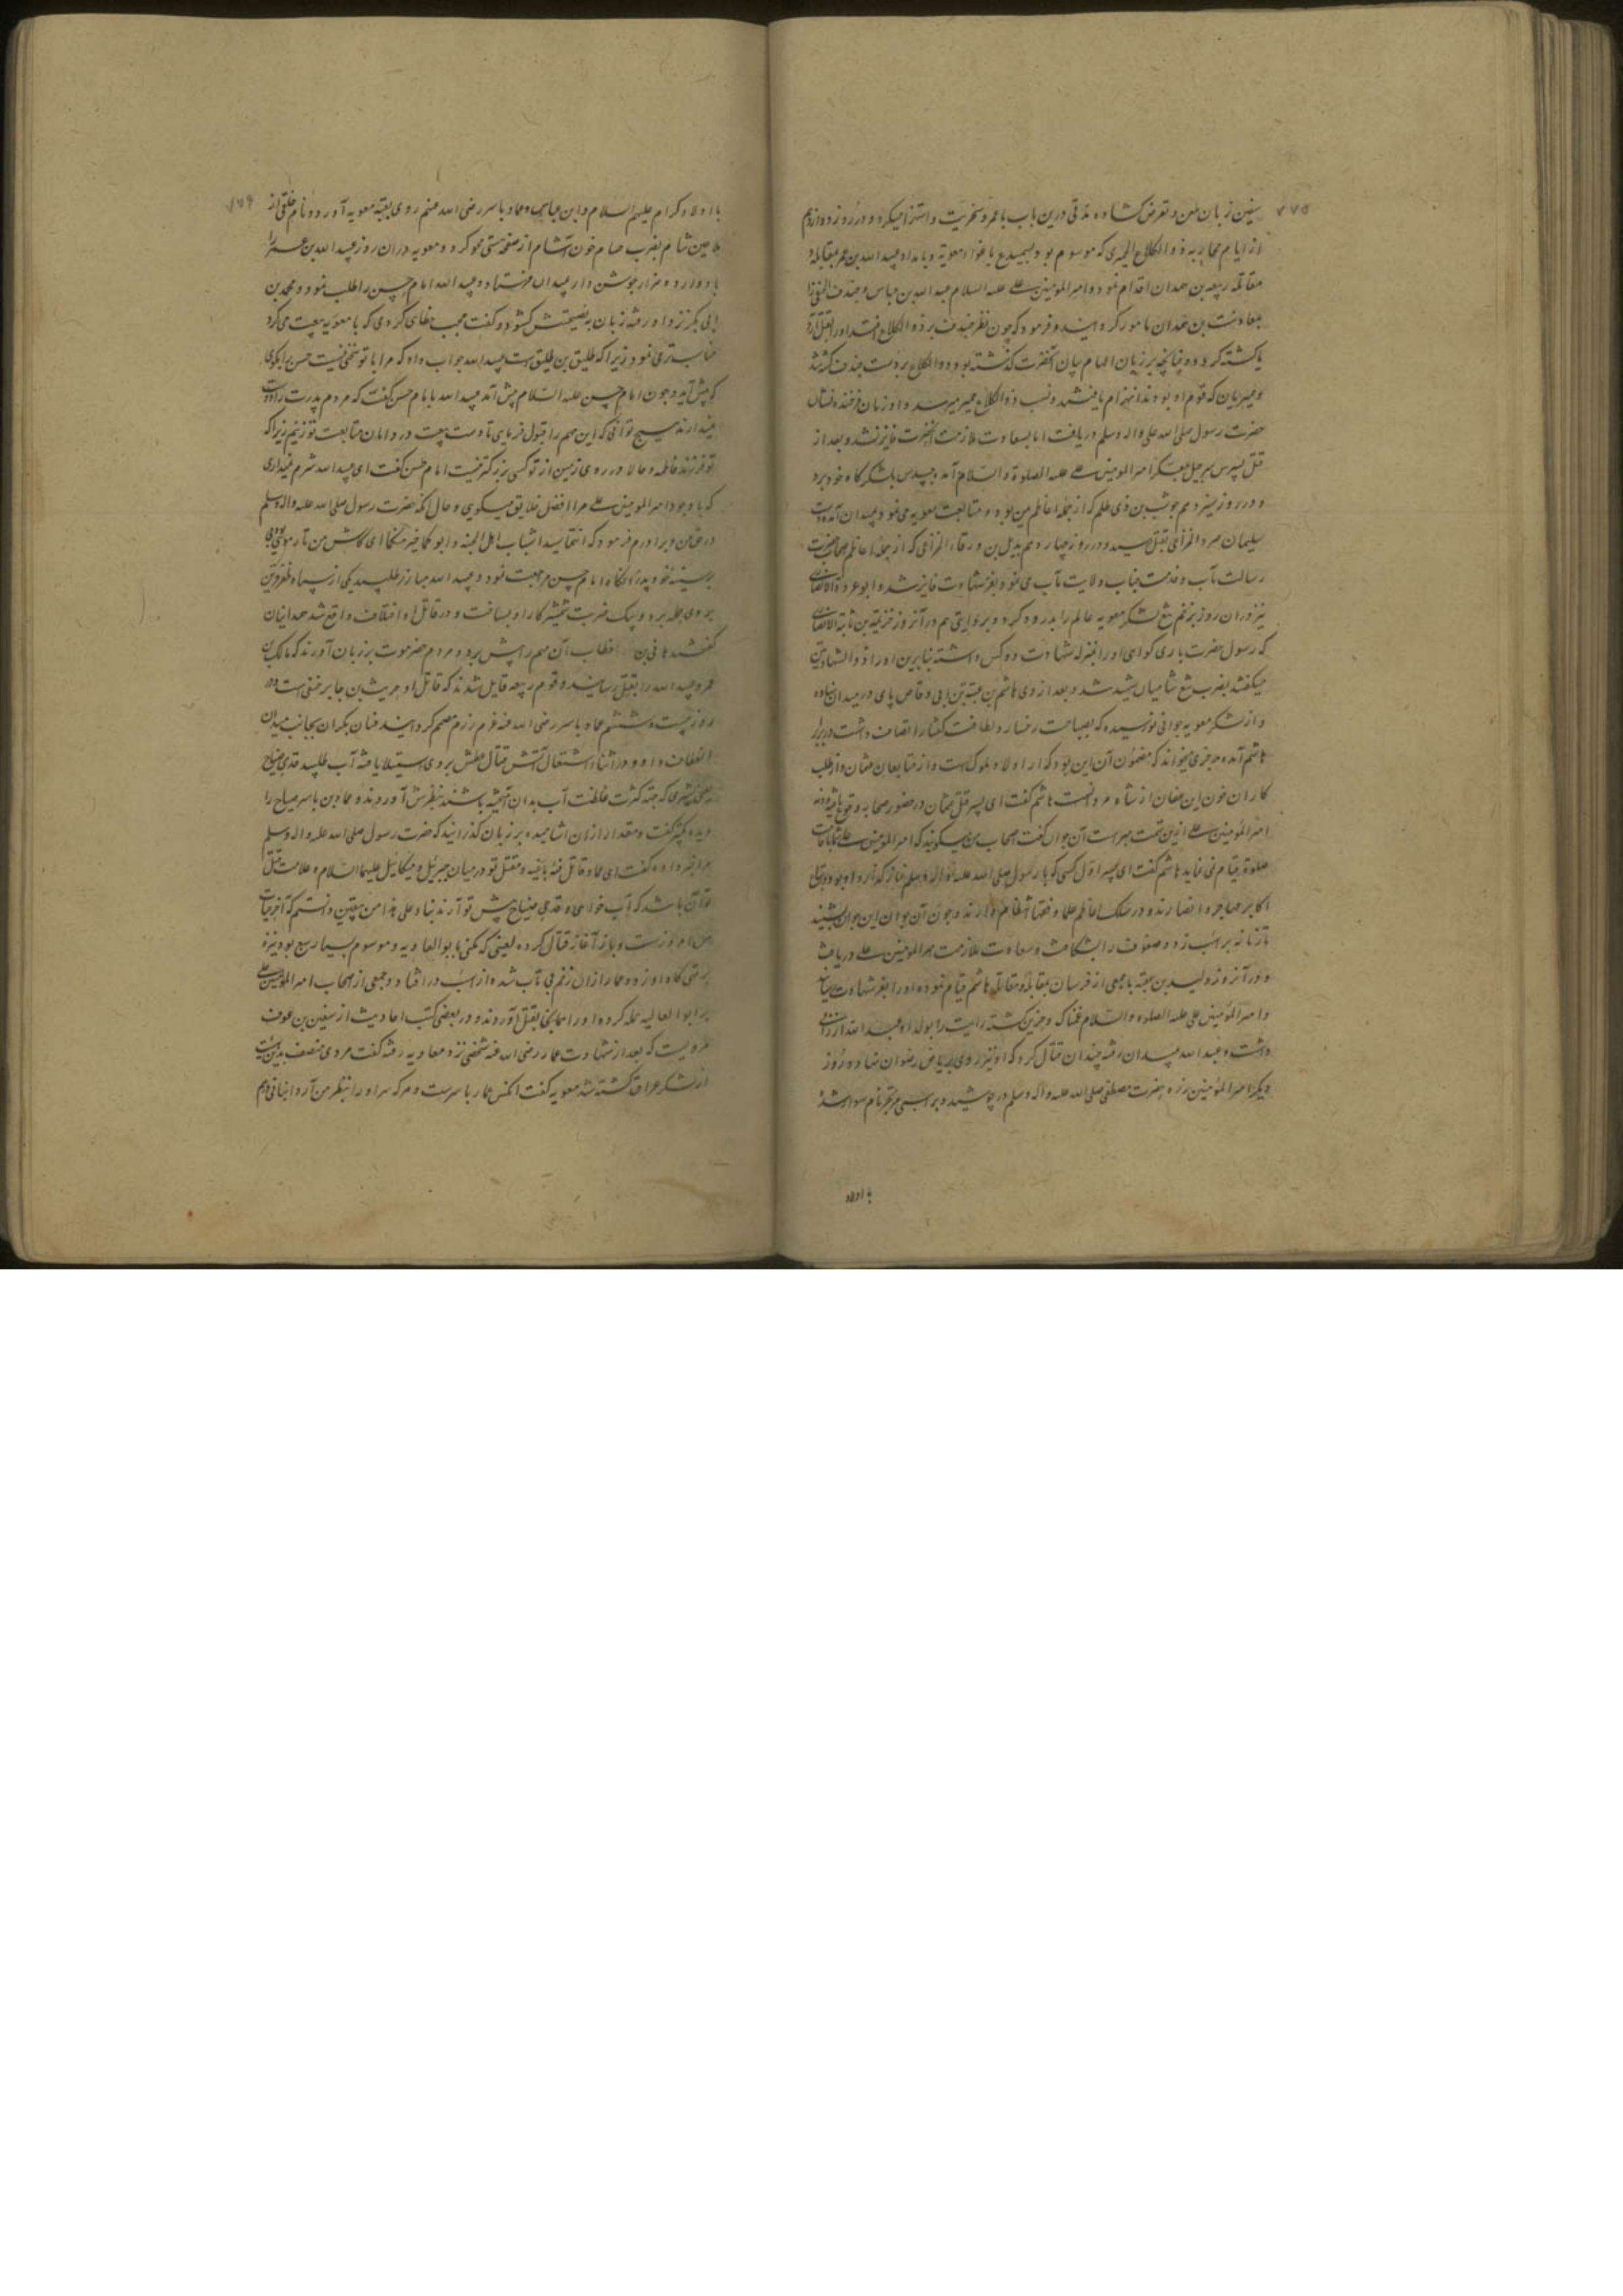 ۷۷۵
سنین زبان طعن و تعرض کشاده مدتی درین باب با عمرو سخریت و استهزا میکرد و در روز دوازدهم
از ایام محاربه ذو الکلاع الحمیری که موسوم بود بسمیدع باغواء معویه و بامداد عبید الله بن عمر بمقابله و
مقاتله ربیعه بن همدان اقدام نمود و امیر المومنین علی علیه السلام عبد الله بن عباس و خندف را
بمعاونت بن همدان مامور کردانید و فرمود که چون نظر خندف بر ذو الکلاع افتد او را بقتل آرد
یا کشته کردد و چنانچه بر زبان الهام بیان آنحضرت گذشته بود ذو الکلاع بر دست خندف کشته شد
و حمیریان که قوم او بودند انهزام یافتند و نسب ذو الکلاع بحمیر میرسد و او زمان فرخنده نشان
حضرت رسول صلی الله علی واله وسلم دریافت اما بسعادت ملازمت آنحضرت فایز نشد و بعد از
قتل پسرش شرحبیل بمعسکر امیر المومنین علی علیه الصلوة والسلام آمده جسد پدر بلشکر گاه خود برد
و در روز سیزدهم حوشب بن ذی ظلم که از جمله اعاظم یمن بود و متابعت معویه می نمود بمیدان آمده بدست
سلیمان صرد الخزاعی بقتل رسید و در روز چهاردهم بدیل بن ورقاء الخزاعی که از جمله اعاظم صحاب حضرت
رسالت مآب و خدمت جناب ولایت مآب می نمود بعز شهادت فایز شد و ابو عمرة الانصاری
نیز در ان روز بزخم تیغ لشکر معویه عالم را بدرود کرد و بروایتی هم در آنروز خزیمه بن ثابت الانصاری
که رسول حضرت باری گواهی او را بمنزله شهادت دو کس داشته بنابرین او را ذو الشهادتین
میگفتند بضرب تیغ شامیان شهید شد و بعد از وی هاشم بن عتبه بن ابی وقاص پای در میدان نهاده
و از لشکر معویه جوانی نورسیده که بصباحت رخسار و لطافت گفتار اتصاف داشت در برابر
هاشم آمده رجزی میخواند که مضمون آن این بود که از اولاد ملوک است و از متابعان عثمان و از طلب
کاران خون ابن عفان از شاه مردانست هاشم گفت ای پسر قتل عثمان در حضور صحابه وقوع یافته و
امیر المومنین علی ازین تهمت مبراست آن جوان گفت اصحاب من میگویند که امیر المومنین علی باقامت
صلوة قیام نمی نماید هاشم گفت ای پسر اول کسی که با رسول صلی الله علیه واله وسلم نماز گذارد او بود و
اکابر مهاجر و انصار ند و در سلک اعاظم علما و فقها انتظام دارند و چون آن جوان این جواب شنید
تازیانه بر اسب زد و صفوف را بشکافت و سعادت ملازمت امیر المومنین علی دریافت
و در آنروز ولید بن عتبه با جمعی از فرسان بمقابله و مقاتله هاشم قیام نموده او را بعز شهادت رسانید
و امیر المومنین علی علیه الصلوه والسلام غمناک و حزین گشته رایت را بولد او عبد الله ارزانی
داشت و عبد الله بمیدان رفته چندان قتال کرد که او نیز روی بریاض رضوان نهاد و روز
دیگر امیر المومنین زره حضرت مصطفی صلی الله علیه واله وسلم در پوشید و بر اسبی مرتجز نام سوار شد
با اولاد
۷۷۶
با اولاد کرام علیهم السلام و ابن عباس و عمار یاسر رضی الله عنهم روی بفئه معویه آورد و تمام خلقی از
ملاعین شام بضرب حسام خون آشام از صفحه هستی محو کرد و معویه در ان روز عبید الله بن عمر را
با دوازده هزار جوشن دار بمیدان فرستاد و عبید الله امام حسین را طلب نمود و محمد بن
ابی بکر نزد او رفته زبان به نصیحتش گشود و گفت عجب خطای کردی که با معویه بیعت می کرد
زیرا که طلیق بن طلیق است عبید الله جواب داد که مرا با تو سخنی نیست حسن را بگوی
که پیش آید و چون امام حسن علیه السلام پیش آمد عبید الله با امام حسن گفت که مردم پدرت را دوست
نمیدارند هیچ توانی که این مهم را قبول فرمایی تا دست بیعت در دامان متابعت تو زنیم زیرا که
تو فرزند فاطمه و حالا در روی زمین از تو کسی بزرگتر نیست امام حسن گفت ای عبید الله شرم نمیداری
که با وجود امیر المومنین علی مرا افضل خلایق میگویی و حال آنکه حضرت رسول صلی الله علیه واله وسلم
در حق من و برادرم فرمود که انتما سیدا شباب اهل الجنه و ابو کما خیر منکما ای کاش من تار موی بودمی
بر سینه خود پدر آنگاه امام حسن مراجعت نمود و عبید الله مبارز طلبید یکی از سپاه ظفر قرین
بروی حمله برد و بیک ضربت شمشیر کار او بساخت و در قاتل او اختلاف واقع شد همدانیان
گفتند هانی بن خطاب آن مهم را پیش برد و مردم حضرموت بر زبان آورند که مالک بن
عمرو عبید الله را بقتل رسانید و قوم ربیعه قایل شدند که قاتل او حریث بن جابر حنفی است و در
روز بیست و ششم عمار یاسر رضی الله عنه عزم رزم مصمم کردانید عنان یکران بجانب میدان
انعطاف داد و در اثناء اشتعال آتش قتال عطش بر وی استیلا یافته آب طلبید قدحی ضیاح
یعنی شیری که جهة کثرت غلظت آب بدان آمیخته باشند بنظرش آوردند و عمار بن یاسر ضیاح را
دیده تکبیر گفت و مقدار از ان آشامیده بر زبان گذرانید که حضرت رسول صلی الله علیه واله وسلم
مرا خبر داده گفت ای عمار قاتل فئه باغیه و مقتل تو در میان جبرئیل و میکائیل علیهما السلام و علامت قتل
تو آن باشد که آب خواهی و قدحی ضیاح پیش تو آرند بنا علی هذا من بیقین دانستم که آخر حیات
من امروز است و باز آغاز قتال کرده لعینی که مکنی بابو العادیه و موسوم بیسار سبع بود نیزه
بر تهی گاه او زد و عمار از ان زخم بی تاب شده از اسب در افتاد و جمعی از اصحاب امیر المومنین علی
بر ابو العالیه حمله کرده او را همانجا بقتل آوردند و در بعضی کتب احادیث از سفین بن عوف
مرویست که بعد از شهادت عمار رضی الله عنه شخصی نزد معاویه رفته گفت مردی متصف بدین صفت
از لشکر عراق کشته شد معویه گفت آنکس عمار یاسر است و هر که سر او را بنظر من آرد